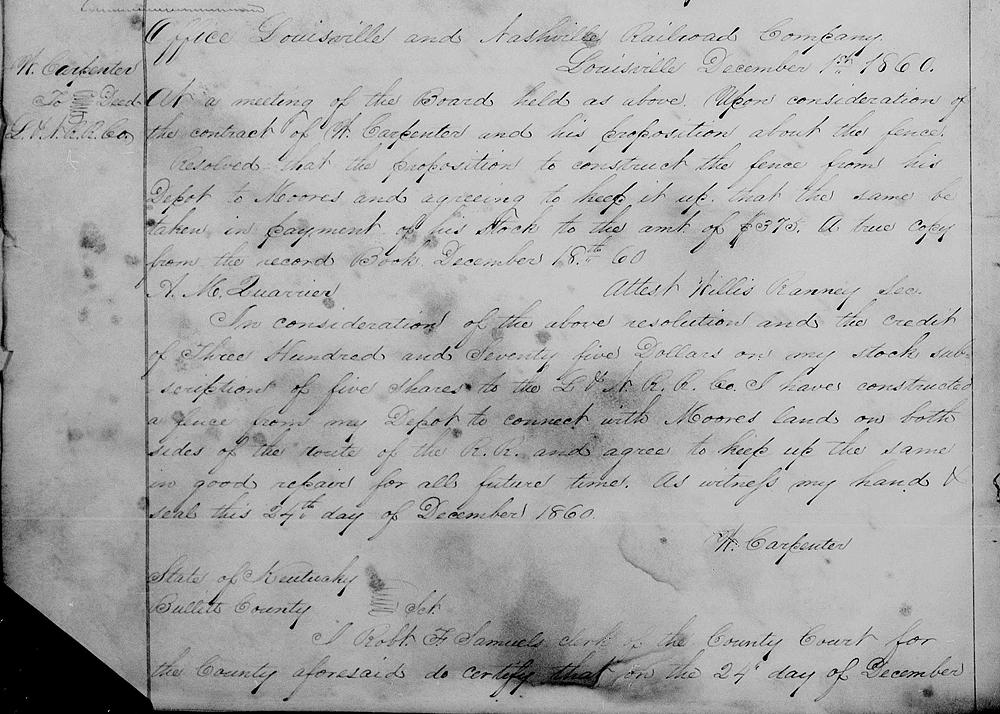 Office Louisville and Nashville Railroad Company
Louisville December 1st 1860.
W. Carpenter
To Deed
L. & N. R. R. Co.
At a meeting of the Board held as above. Upon consideration of
the contract of W. Carpenter and his proposition about the fence.
Resolved that the proposition to construct the fence from his
Depot to Moores and agreeing to keep it up. that the same be
taken in payment of his Stock to the amt of $375. A true copy
from the record Book. December 18th 60
A. M. Quarrier Attest Willis Ranney Sec.
In consideration of the above resolution and the credit
of Three Hundred and Seventy five Dollars on my stock sub-
scription of five shares to the L & N. R. R. Co. I have constructed
a fence from my Depot to connect with Moores land on both
sides of the route of the R. R. and agree to keep up the same
in good repair for all future time. As witness my hand &
seal this 24th day of December 1860.
W. Carpenter
State of Kentucky
Bullitt County Sct.
I Robt. F. Samuels clerk of the County Court for
the County aforesaid do certify that on the 24th day of December